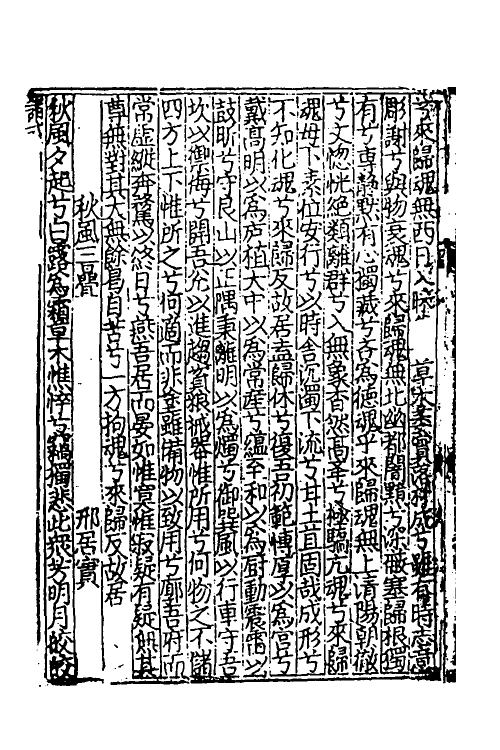 兮來歸魂無西日入暗　草木黃實落材成兮雖有時志意
彫謝兮與物衰魂兮來歸魂無北幽都闇黯兮深蔽塞歸根獨
有兮專靜默有心獨藏兮吝為德魂乎來歸魂無上清陽朝徹
兮文惚恍絕類離群兮入無象杳然高舉兮極驕亢魂兮來歸
魂毋下素位安行兮以時舍沉濁下流兮甘土苴固哉成形兮
不知化魂兮來歸反故居盍歸休兮復吾初範博厚以為宮兮
戴高明以為廬植大中以為常產兮蘊至和以為厨動震雷以
鼓昕兮守艮山以止隅秉離明以為燭兮御巽風以行車守吾
坎以禦侮兮開吾兌以進趨資糧械器惟所用兮何物之不儲
四方上下惟所之兮何適而非塗雖備物以致用兮廓吾府而
常虛縱奔鶩以終日兮燕吾居而晏如惟寞惟寂疑有疑無其
尊無對其大無餘曷自苦兮一方拘魂兮來歸反故居
秋風三疊　邢居實
秋風夕起兮白露為霜草木憔悴兮竊獨悲此衆芳明月皎皎